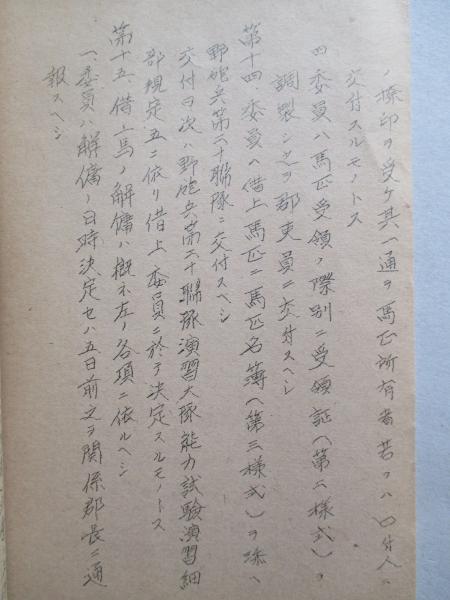 ノ捺印ヲ受ケ其一通ヲ馬匹所有者若クハ付人ニ
交付スルモノトス
四 委員ハ馬匹受領ノ際別ニ受領証(第二様式)ヲ
調製シ之ヲ郡吏員ニ交付スヘシ
第十四、委員ハ借上馬匹ニ馬匹名簿(第三様式)ヲ添ヘ
野砲兵第二十聯隊ニ交付スヘシ
交付ノ次ハ野砲兵第二十聯隊演習大隊能力試験演習細
部規定五ニ依リ借上委員ニ於テ決定スルモノトス
第十五、借上馬ノ解傭ハ概ネ左ノ各項ニ依ルヘシ
一、委員ハ解傭ノ日時決定セハ五日前之ヲ関係郡長ニ通
報スヘシ